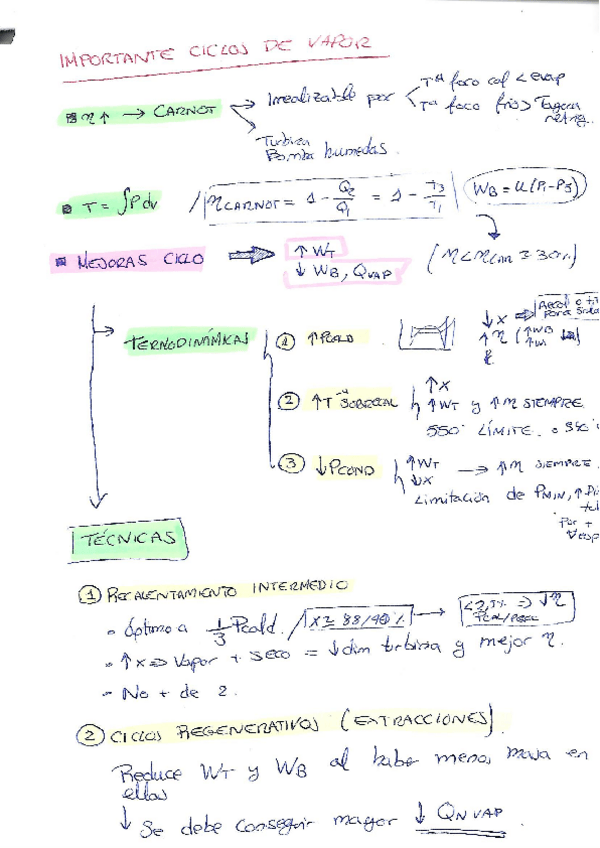 IMPORTANTE CICLOS DE VAPOR
η↑ → CARNOT
Irrealizable por
Tª foco cal < evap
Tª foco frío >
Turbina
Bomba humedas.
T = ∫Pdv / ηCARNOT = 1 - Q2/Q1 = 1 - T3/T1
MEJORAS CICLO
↑ WT
↓ WB, QVAP
TERMODINÁMICAS
① ↑ PCALD
↓ X
↑ η
② ↑ Tª SOBRECAL
↑ X
↑ WT y ↑ η SIEMPRE
550° LÍMITE.
③ ↓ PCOND
↑ WT → ↑ η SIEMPRE.
↓ X
Limitación de PMIN,
Por +
TÉCNICAS
① RECALENTAMIENTO INTERMEDIO
- Óptimo a 1/3 Pcald. / X ≥ 88/90 % →
- ↑ X ⇒ Vapor + seco = ↓ dim turbina y mejor η.
- No + de 2.
② CICLOS REGENERATIVOS (EXTRACCIONES)
Reduce WT y WB al haber menos masa en
ellos
↓ Se debe conseguir mayor ↓ QN VAP.